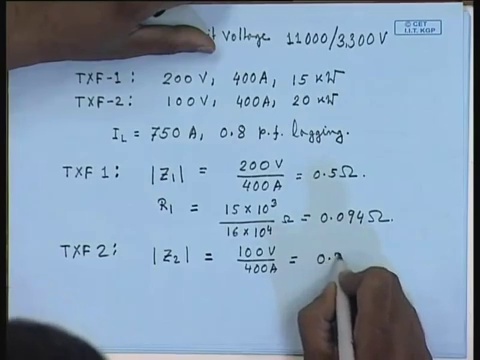 it Voltage 11000/3,300V
© CET
I.I.T. KGP
TXF-1: 200 V, 400A, 15 KW
TXF-2: 100 V, 400A, 20 KW
I_L = 750 A, 0.8 p.f. lagging.
TXF 1: |Z₁| = 200 V / 400 A = 0.5Ω.
R₁ = 15 × 10³ / 16 × 10⁴ Ω = 0.094Ω.
TXF 2: |Z₂| = 100 V / 400A = 0.2